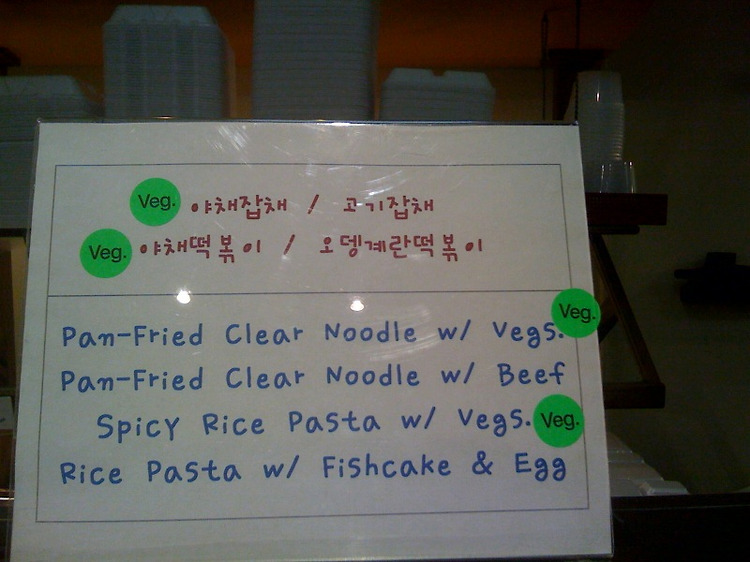 Veg. 야채잡채 / 고기잡채
Veg. 야채떡볶이 / 오뎅계란떡볶이
Pan-Fried Clear Noodle w/ Vegs. Veg.
Pan-Fried Clear Noodle w/ Beef
Spicy Rice Pasta w/ Vegs. Veg.
Rice Pasta w/ Fishcake & Egg